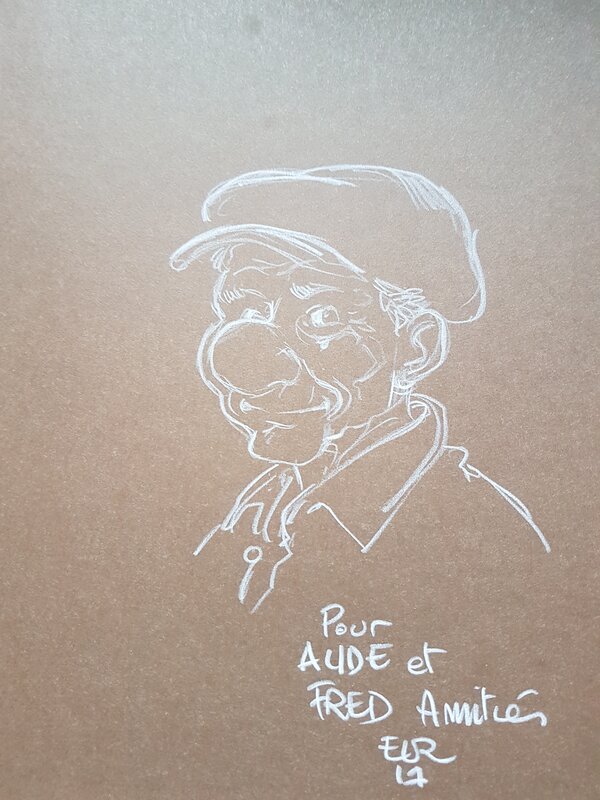 Pour
AUDE et
FRED Amitiés
EUR
17